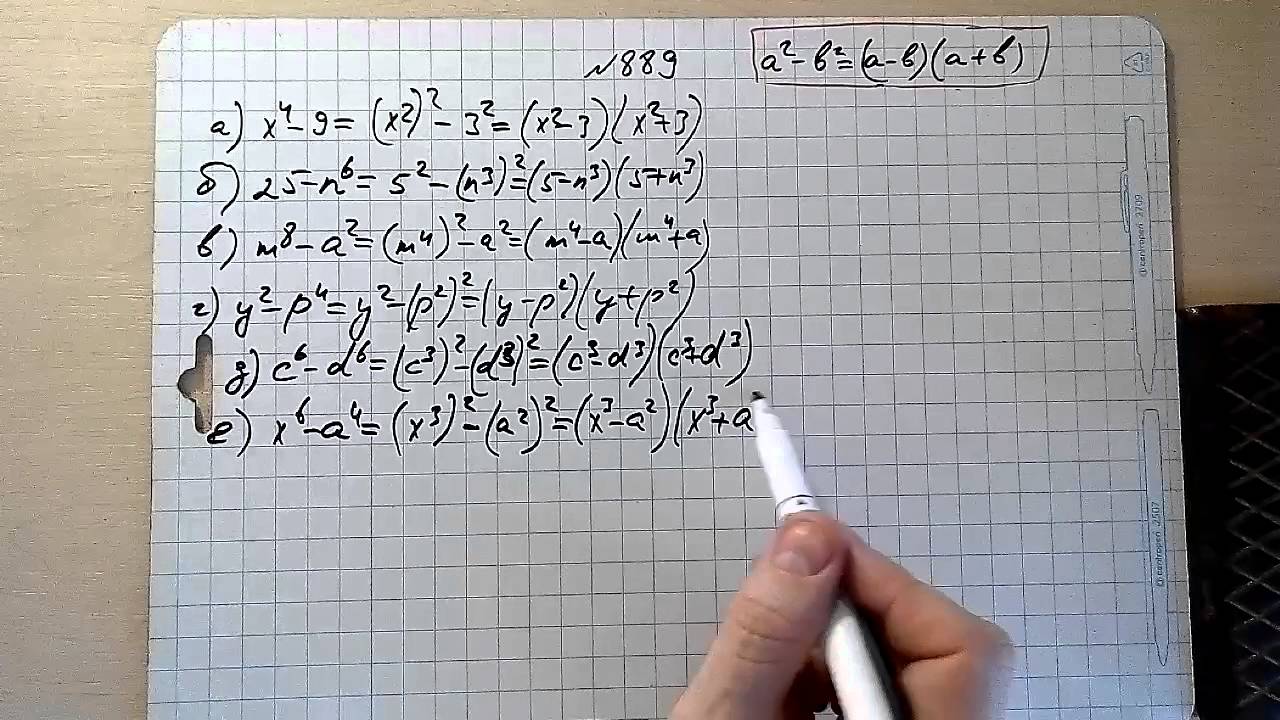 №889
a²-b²=(a-b)(a+b)
а) x⁴-9=(x²)²-3²=(x²-3)(x²+3)
б) 25-n⁶=5²-(n³)²=(5-n³)(5+n³)
в) m⁸-a²=(m⁴)²-a²=(m⁴-a)(m⁴+a)
г) y²-p⁴=y²-(p²)²=(y-p²)(y+p²)
д) c⁶-d⁶=(c³)²-(d³)²=(c³-d³)(c³+d³)
е) x⁶-a⁴=(x³)²-(a²)²=(x³-a²)(x³+a
© centropen 2709
© centropen 2507